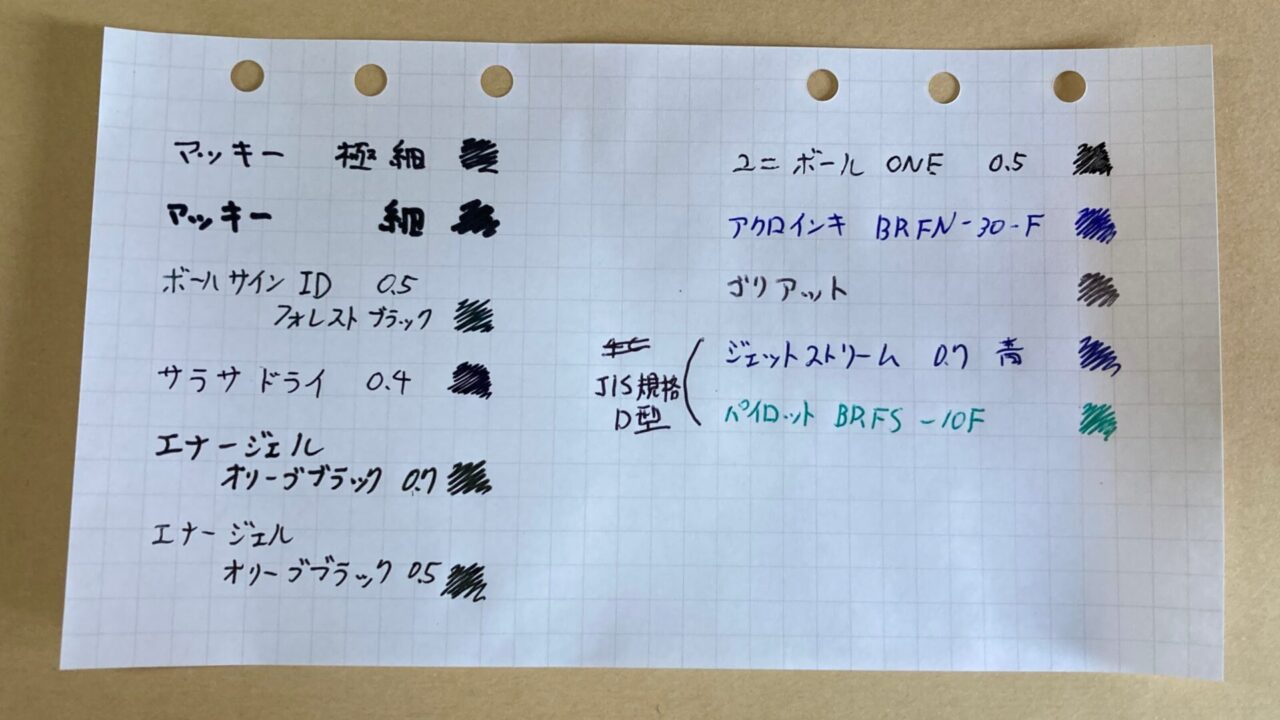 マッキー 極細
マッキー 細
ボールサイン ID 0.5
フォレストブラック
サラサドライ 0.4
エナージェル
オリーブブラック 0.7
エナージェル
オリーブブラック 0.5
ユニボール ONE 0.5
アクロインキ BRFN-30-F
ゴリアット
ジェットストリーム 0.7 青
JIS規格
D型
パイロット BRFS-10F